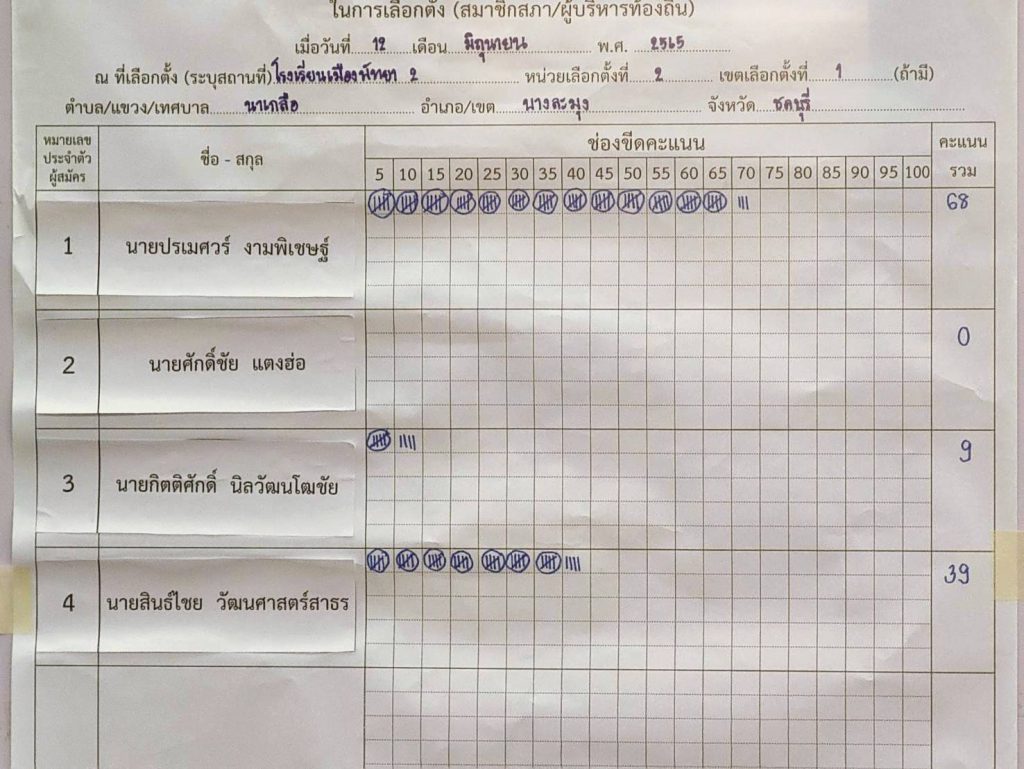 ในการเลือกตั้ง (สมาชิกสภา/ผู้บริหารท้องถิ่น)
เมื่อวันที่ 12 เดือน มิถุนายน พ.ศ. 2565
ณ ที่เลือกตั้ง (ระบุสถานที่) โรงเรียนเมืองพัทยา 2 หน่วยเลือกตั้งที่ 2 เขตเลือกตั้งที่ 1 (ถ้ามี)
ตำบล/แขวง/เทศบาล นาเกลือ อำเภอ/เขต บางละมุง จังหวัด ชลบุรี
หมายเลขประจำตัวผู้สมัคร ชื่อ - สกุล ช่องขีดคะแนน คะแนนรวม
5 10 15 20 25 30 35 40 45 50 55 60 65 70 75 80 85 90 95 100
1 นายปรเมศวร์ งามพิเชษฐ์ 68
2 นายศักดิ์ชัย แตงฮ่อ 0
3 นายกิตติศักดิ์ นิลวัฒนโฒชัย 9
4 นายสินธ์ไชย วัฒนศาสตร์สาธร 39